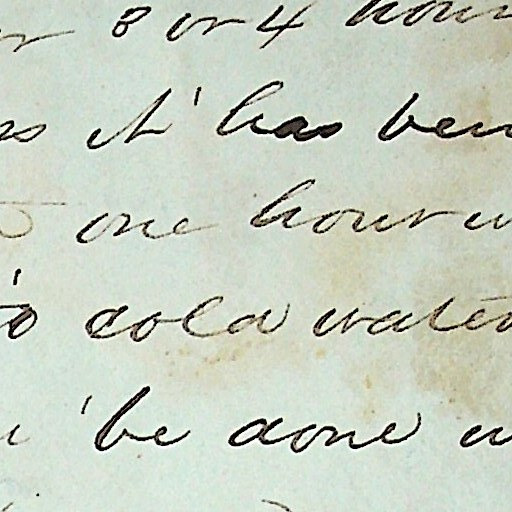 or 3 or 4 hour
it has been
one hour
to cold water
be done